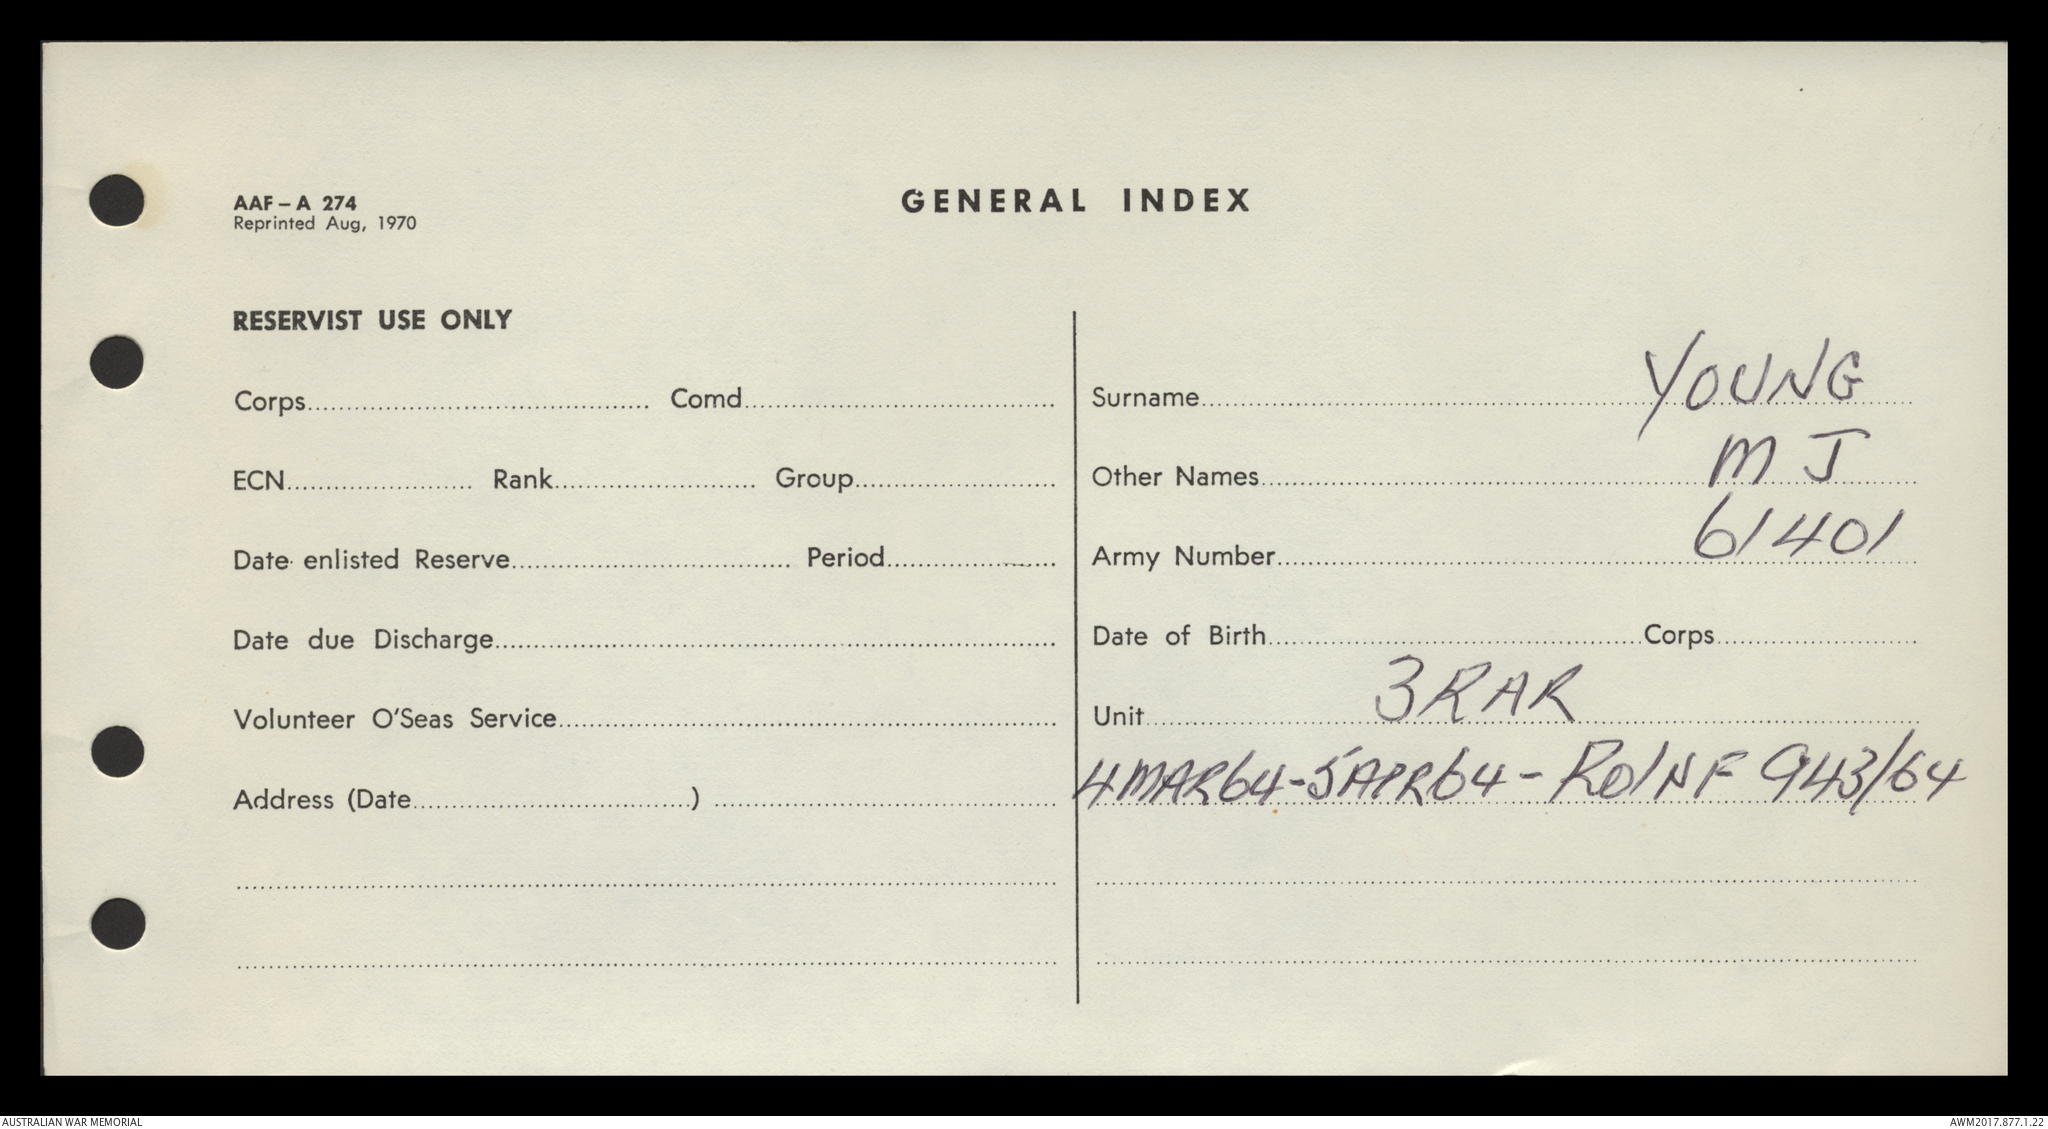 AAF – A 274
Reprinted Aug, 1970
GENERAL INDEX
RESERVIST USE ONLY
Corps Comd
ECN Rank Group
Date enlisted Reserve Period
Date due Discharge
Volunteer O'Seas Service
Address (Date )
Surname YOUNG
Other Names M J
Army Number 61401
Date of Birth Corps
Unit 3RAR
4MAR64-5APR64 - RO/NF 943/64
AUSTRALIAN WAR MEMORIAL
AWM2017.877.1.22